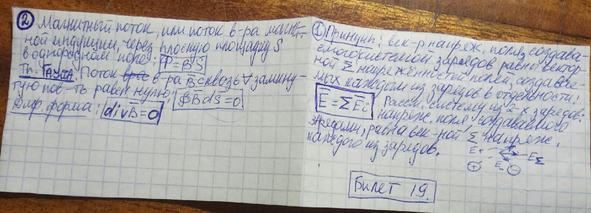 ② Магнитный поток, или поток в-ра магнит-
ной индукции, через плоскую площадку S
в однородном поле: Φ=B̅S̅
Th. Гаусса: Поток в-ра B̅ сквозь ∀ замкну-
тую пов-ть равен нулю: ∮B̅dS̅=0.
Диф форма: divB̅=0
① Принцип: век-р напряж. поля, создава-
емого системой зарядов равен вектор-
ной Σ напряжённостей полей, создавае-
мых каждым из зарядов в отдельности:
E̅=ΣE̅ᵢ Рассм. систему из 2-х зарядов:
напряж. поля создаваемого
зарядами, равна век-ной Σ напряж.
каждого из зарядов.
E₊ E_Σ
⊕ E₋ ⊖
Билет 19.